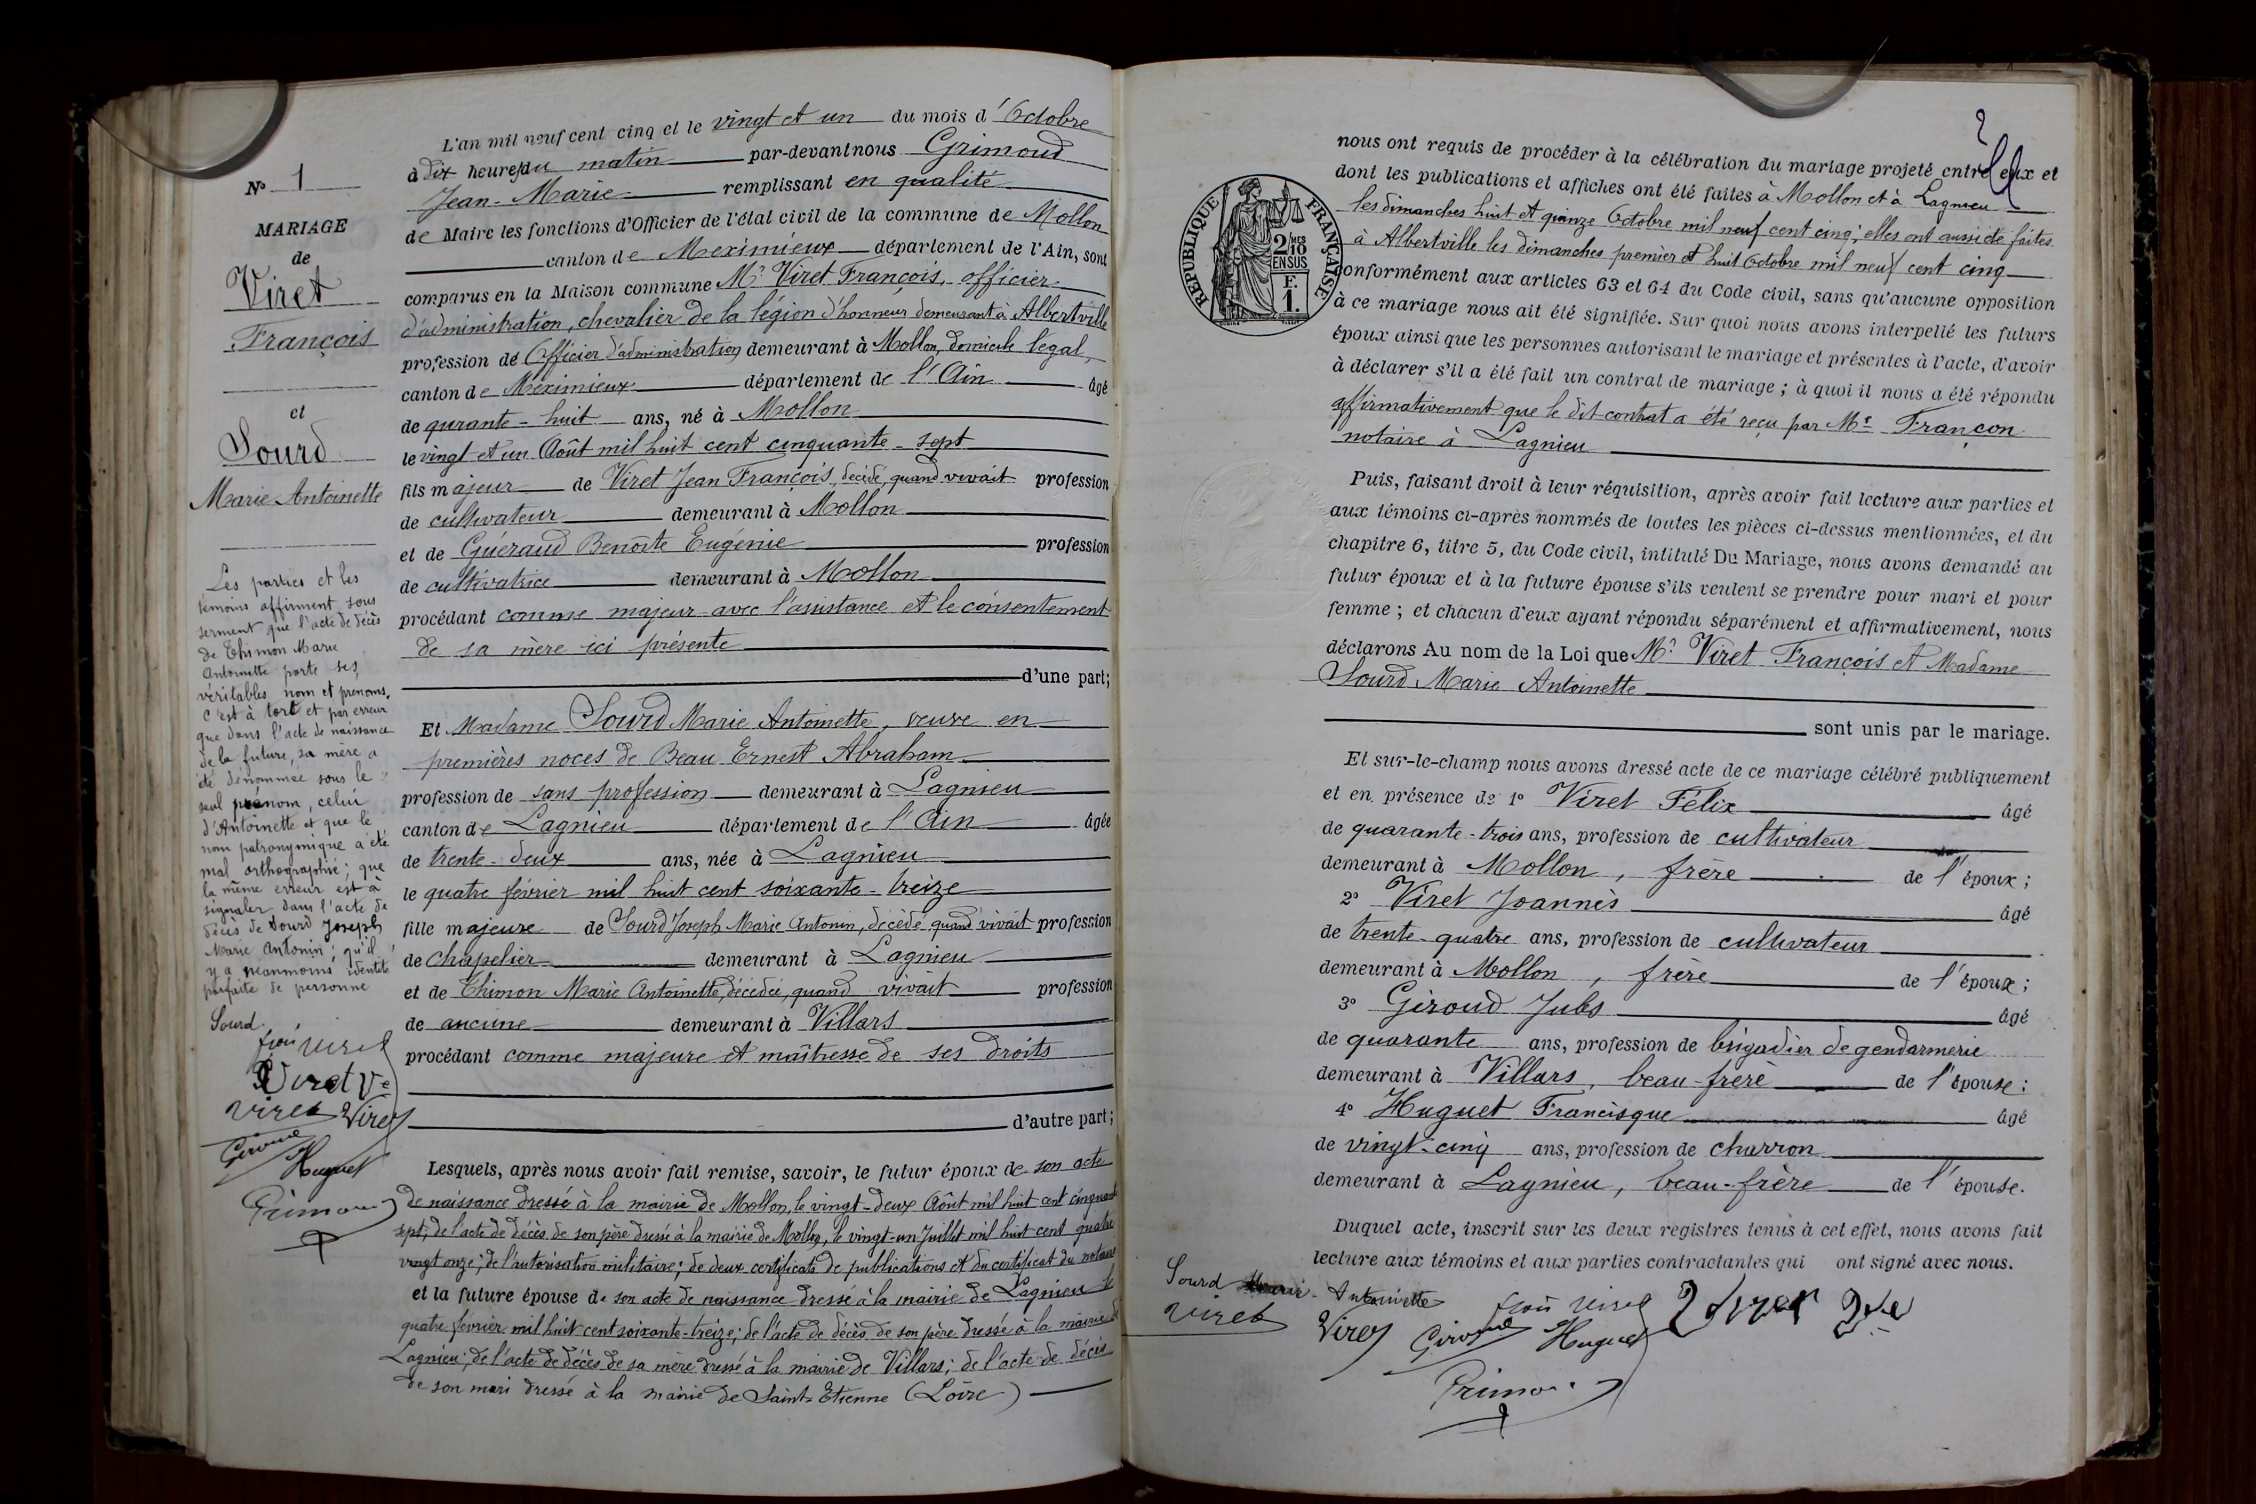 N° 1
MARIAGE
de
Viret
François
et
Sourd
Marie Antoinette
Les parties et les
témoins affirment sous
serment que l'acte de décès
de Thimon Marie
Antoinette porte ses
véritables nom et prénoms,
c'est à tort et par erreur
que dans l'acte de naissance
de la future, sa mère a
été dénommée sous le
seul prénom, celui
d'Antoinette et que le
nom patronymique a été
mal orthographié; que
la même erreur est à
signaler dans l'acte de
décès de Sourd Joseph
Marie Antonin; qu'il
y a néanmoins identité
parfaite de personne
Sourd
frois Viret
Viret Ve
Viret Viret
Giroud
Huguet
Grimoud
L'an mil neuf cent cinq et le vingt et un du mois d'Octobre
à dix heures du matin par-devant nous Grimoud
Jean-Marie remplissant en qualité
de Maire les fonctions d'Officier de l'état civil de la commune de Mollon
canton de Meximieux département de l'Ain, sont
comparus en la Maison commune Mr Viret François, officier
d'administration, chevalier de la légion d'honneur demeurant à Albertville
profession de Officier d'administration demeurant à Mollon, domicile légal,
canton de Meximieux département de l'Ain âgé
de qurante-huit ans, né à Mollon
le vingt et un Août mil huit cent cinquante-sept
fils majeur de Viret Jean François, décédé, quand vivait profession
de cultivateur demeurant à Mollon
et de Guéraud Benoîte Eugénie profession
de cultivatrice demeurant à Mollon
procédant comme majeur avec l'assistance et le consentement
de sa mère ici présente
d'une part;
Et Madame Sourd Marie Antoinette, veuve en
premières noces de Beau Ernest Abraham
profession de sans profession demeurant à Lagnieu
canton de Lagnieu département de l'Ain âgée
de trente-deux ans, née à Lagnieu
le quatre février mil huit cent soixante-treize
fille majeure de Sourd Joseph Marie Antonin, décédé quand vivait profession
de chapelier demeurant à Lagnieu
et de Thimon Marie Antoinette, décédée, quand vivait profession
de aucune demeurant à Villars
procédant comme majeure et maîtresse de ses droits
d'autre part;
Lesquels, après nous avoir fait remise, savoir, le futur époux de son acte
de naissance dressé à la mairie de Mollon, le vingt-deux Août mil huit cent cinquante
sept; de l'acte de décès de son père dressé à la mairie de Mollon, le vingt-un Juillet mil huit cent quatre
vingt onze; de l'autorisation militaire; de deux certificats de publications et du certificat du notaire
et la future épouse de son acte de naissance dressé à la mairie de Lagnieu le
quatre février mil huit cent soixante-treize; de l'acte de décès de son père dressé à la mairie de
Lagnieu; de l'acte de décès de sa mère dressé à la mairie de Villars; de l'acte de décès
de son mari dressé à la mairie de Saint-Etienne (Loire)
RÉPUBLIQUE FRANÇAISE
2/10
EN SUS
F.
1.
nous ont requis de procéder à la célébration du mariage projeté entre eux et
dont les publications et affiches ont été faites à Mollon et à Lagnieu
les dimanches huit et quinze Octobre mil neuf cent cinq; elles ont aussi été faites
à Albertville les dimanches premier et huit Octobre mil neuf cent cinq
conformément aux articles 63 et 64 du Code civil, sans qu'aucune opposition
à ce mariage nous ait été signifiée. Sur quoi nous avons interpellé les futurs
époux ainsi que les personnes autorisant le mariage et présentes à l'acte, d'avoir
à déclarer s'il a été fait un contrat de mariage; à quoi il nous a été répondu
affirmativement que le dit contrat a été reçu par Me Françon
notaire à Lagnieu
Puis, faisant droit à leur réquisition, après avoir fait lecture aux parties et
aux témoins ci-après nommés de toutes les pièces ci-dessus mentionnées, et du
chapitre 6, titre 5, du Code civil, intitulé Du Mariage, nous avons demandé au
futur époux et à la future épouse s'ils veulent se prendre pour mari et pour
femme; et chacun d'eux ayant répondu séparément et affirmativement, nous
déclarons Au nom de la Loi que Mr Viret François et Madame
Sourd Marie Antoinette
sont unis par le mariage.
Et sur-le-champ nous avons dressé acte de ce mariage célébré publiquement
et en présence de 1° Viret Félix âgé
de quarante-trois ans, profession de cultivateur
demeurant à Mollon, frère de l'époux;
2° Viret Joannès âgé
de trente-quatre ans, profession de cultivateur
demeurant à Mollon, frère de l'époux;
3° Giroud Jules âgé
de quarante ans, profession de brigadier de gendarmerie
demeurant à Villars, beau-frère de l'épouse;
4° Huguet Francisque âgé
de vingt-cinq ans, profession de charron
demeurant à Lagnieu, beau-frère de l'épouse.
Duquel acte, inscrit sur les deux registres tenus à cet effet, nous avons fait
lecture aux témoins et aux parties contractantes qui ont signé avec nous.
Sourd Marie-Antoinette frois Viret Viret Ve
Viret Viret Giroud Huguet
Grimoud